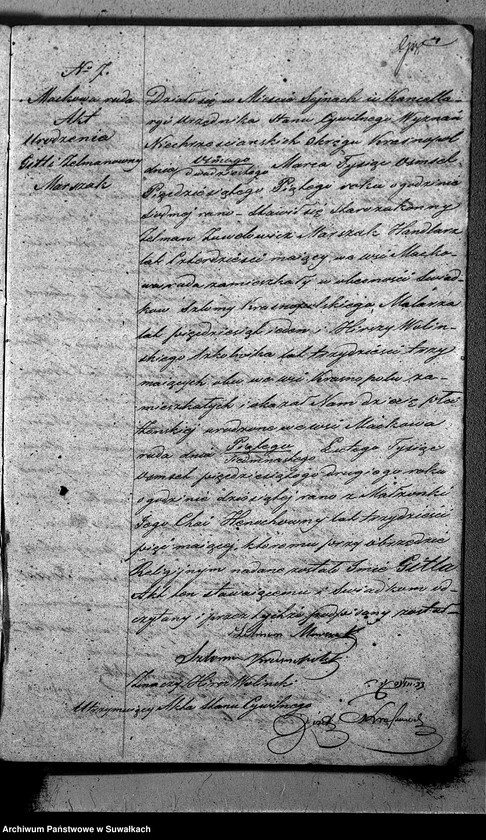 No 7.
Maćkowa ruda
Akt
Urodzenia
Gitli Zelmanowny
Marszak
Działo się w Mieście Sejnach w Kancella-
ryi Urzędnika Stanu Cywilnego Wyznań
Niechrześciańskich Okręgu Krasnopol
dnia Ósmego / Dwudziestego Marca Tysiąc Ośmset
Pięćdziesiątego Piątego roku o godzinie
siódmej rano. Stawił się Starozakonny
Zelman Zawelowicz Marszak Handlarz
lat Czterdzieści maiący we wsi Maćko-
wa ruda zamieszkały w obecności świad-
ków Szlomy Krasnopolskiego, Malarza
lat pięćdziesiąt ieden i Hirszy Wolin-
skiego Szkolnika lat trzydzieści trzy
maiących obu we wsi Krasnopolu za-
mieszkałych i okazał Nam dziecię płci
Żeńskiej urodzone we wsi Maćkowa
ruda dnia Piątego / Siedmnastego Lutego Tysiąc
ośmset pięćdziesiątego drugiego roku
o godzinie dziesiątej rano z Małżonki
Jego Chai Henochowny lat trzydzieści
pięć maiącej, któremu przy obrzędzie
Religijnym nadane zostało Imie Gitla
Akt ten stawaiącemu i świadkom od-
czytany i przez tychże podpisany został
Zelman Marszak
Szloma Krasnopolski
Hirsz Wolinski
Utrzymujący Akta Stanu Cywilnego
Archiwum Państwowe w Suwałkach